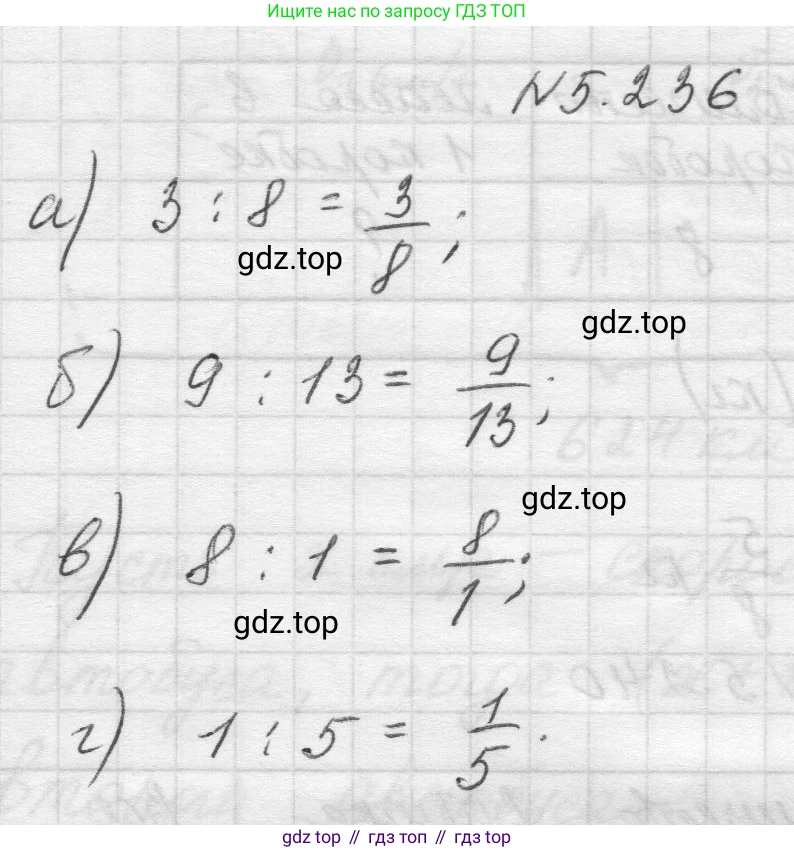 Ищите нас по запросу ГДЗ ТОП
N 5.236
а) 3 : 8 = 3/8 ;
gdz.top
gdz.top
б) 9 : 13 = 9/13 ;
gdz.top
в) 8 : 1 = 8/1 ;
gdz.top
г) 1 : 5 = 1/5 .
gdz top // гдз топ // gdz top